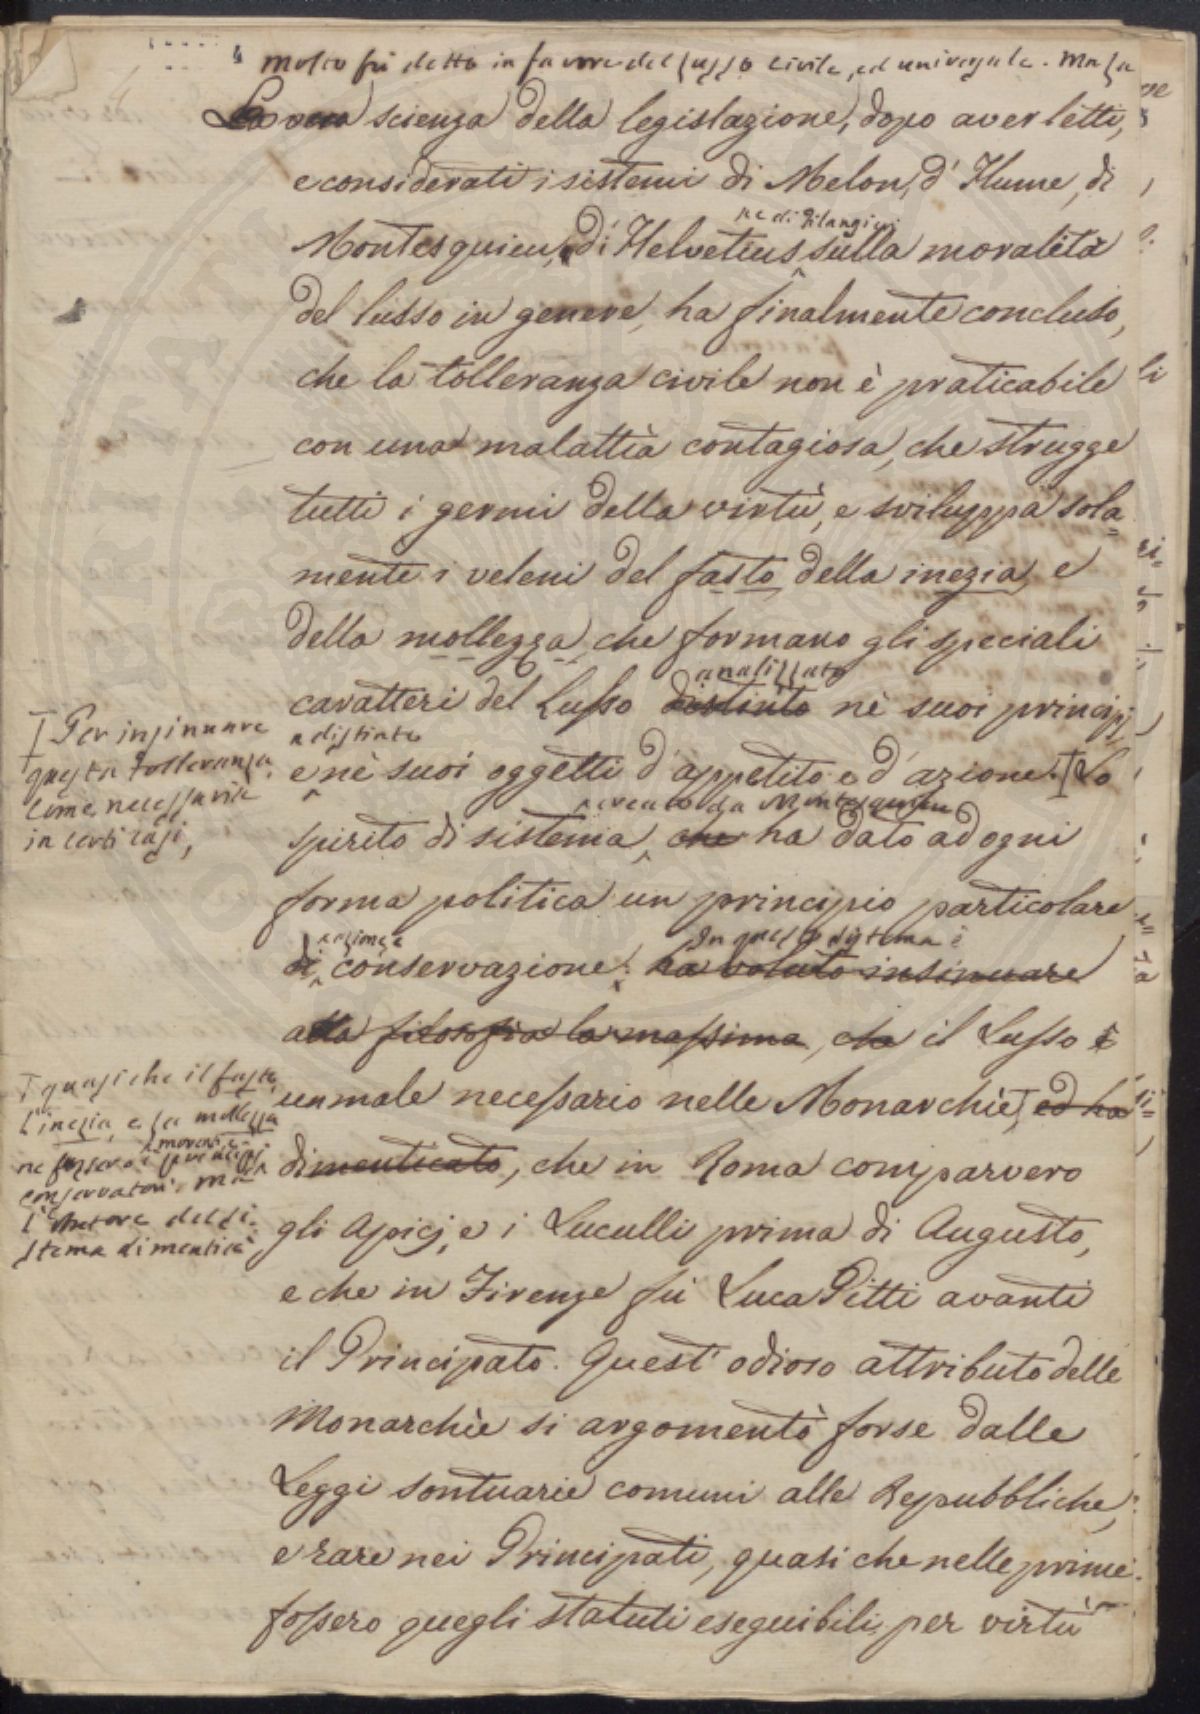 molto fù detto in favore del lusso civile, ed universale. Ma la
scienza della legislazione, dopo aver letti,
e considerati i sistemi di Melon, d' Hume, di
ne di Filangieri
Montesquieu, di Helvetius sulla moralità
del lusso in genere, ha finalmente concluso,
che la tolleranza civile non è praticabile
con una malattia contagiosa, che strugge
tutti i germi della virtù, e sviluppa sola=
mente i veleni del fasto, della inezia, e
della mollezza, che formano gli speciali
analizzato
caratteri del Lusso distinto nè suoi principj
e distinto
e nè suoi oggetti d'appetito e d'azione. Lo
Per insinuare
questa tolleranza,
come necessaria
in certi casi,
creato da Montesquieu
spirito di sistema, che ha dato ad ogni
forma politica un principio particolare
In questo sistema è
di conservazione: ha voluto insinuare
alla filosofia la massima, che il Lusso è
un male necessario nelle Monarchie, ed ha
quasi che il fasto,
l'inezia, e la mollezza
ne fossero i
conservatori. Ma
l'Autore del si=
stema dimenticò
dimenticato, che in Roma comparvero
gli Apicj, e i Luculli prima di Augusto,
e che in Firenze fù Luca Pitti avanti
il Principato. Quest' odioso attributo delle
Monarchie si argomentò forse dalle
Leggi sontuarie comuni alle Repubbliche,
e rare nei Principati, quasi che nelle prime
fossero quegli statuti eseguibili per virtù